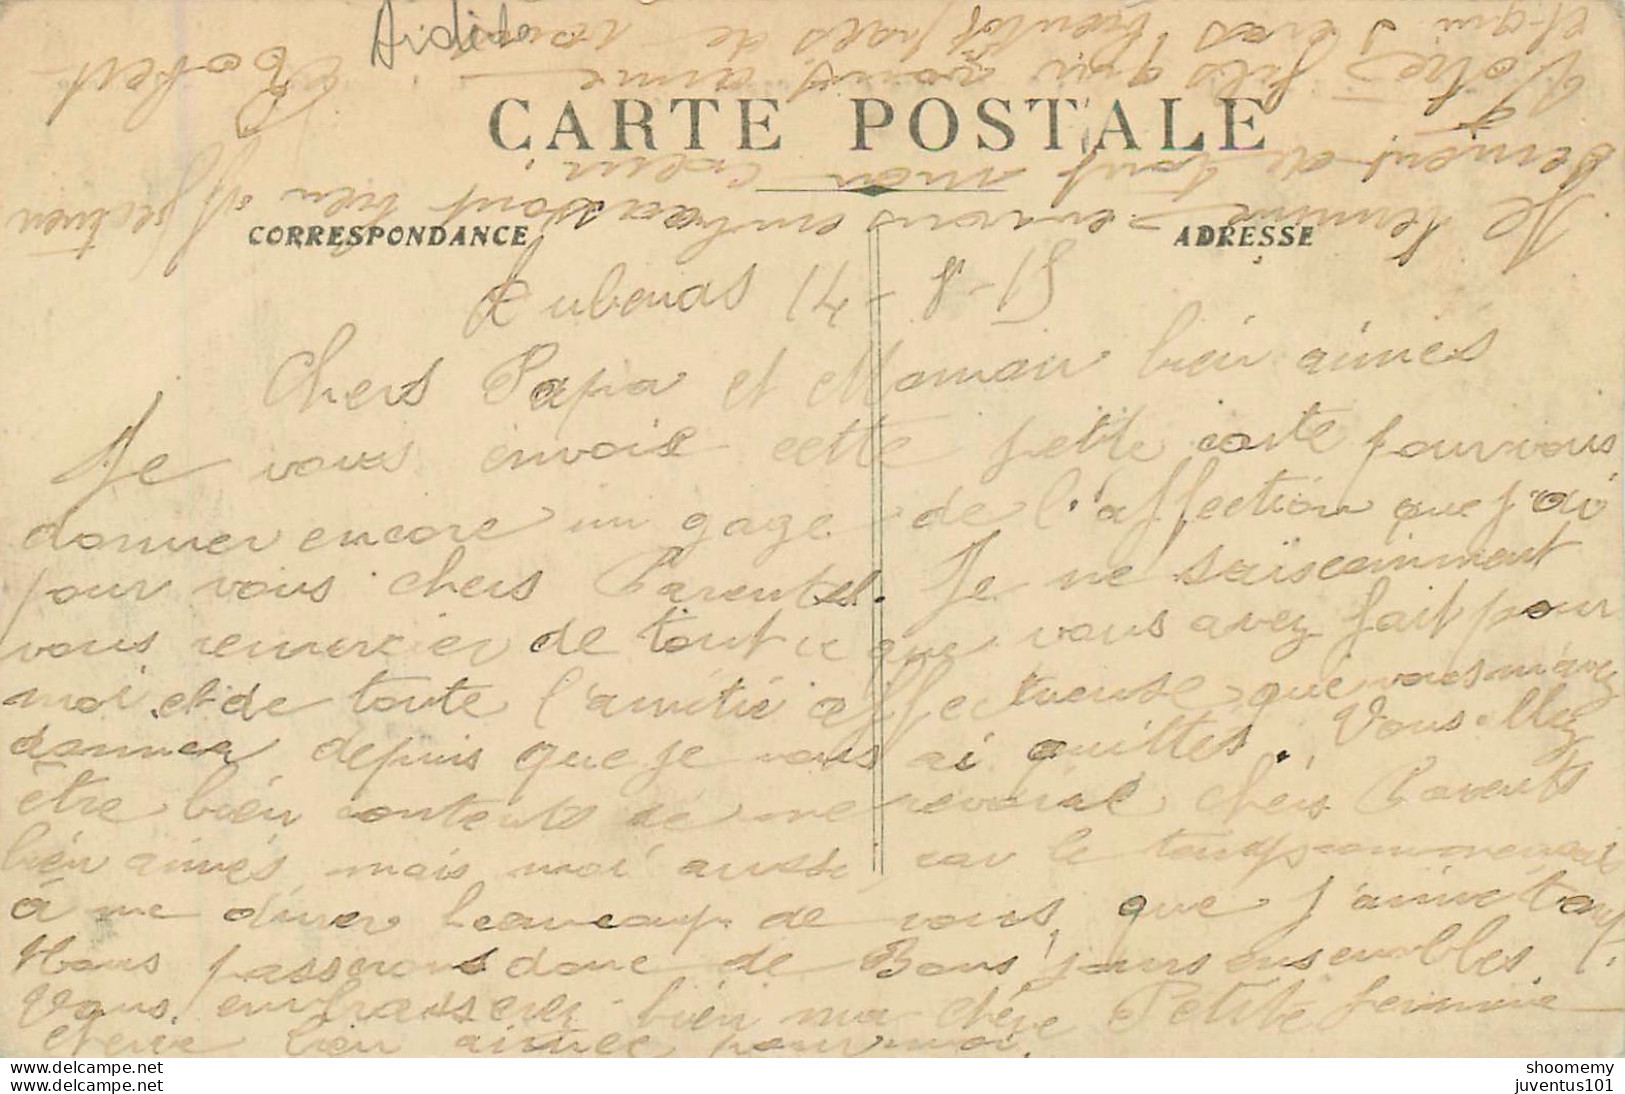 CARTE POSTALE
CORRESPONDANCE
ADRESSE
Aubenas 14 - 8 - 15
Chers Papa et Maman bien aimés
Je vous envoie cette petite carte pour vous
donner encore un gage de l'affection que j'ai
pour vous chers Parents. Je ne saïs comment
vous remercier de tout ce que vous avez fait pour
moi et de toute l'amitié affectueuse que vous m'avez
donner depuis que je vous ai quittes. Vous allez
être bien contents de me revoir chers Parents
bien aimés, mais moi aussi, car le temps commencais
à me durer beaucoup de vous, que j'aime tant
Nous passerons donc de Bons jours ensembles.
Vous embrasserez bien ma chère Petite femme
cherie bien aimée pour moi.
Je termine en vous embrassant bien affectueu
sement de tout mon coeur.
Votre fils qui vous aime
et qui seras bientôt pres de vous
Robert
shoomemy
juventus101